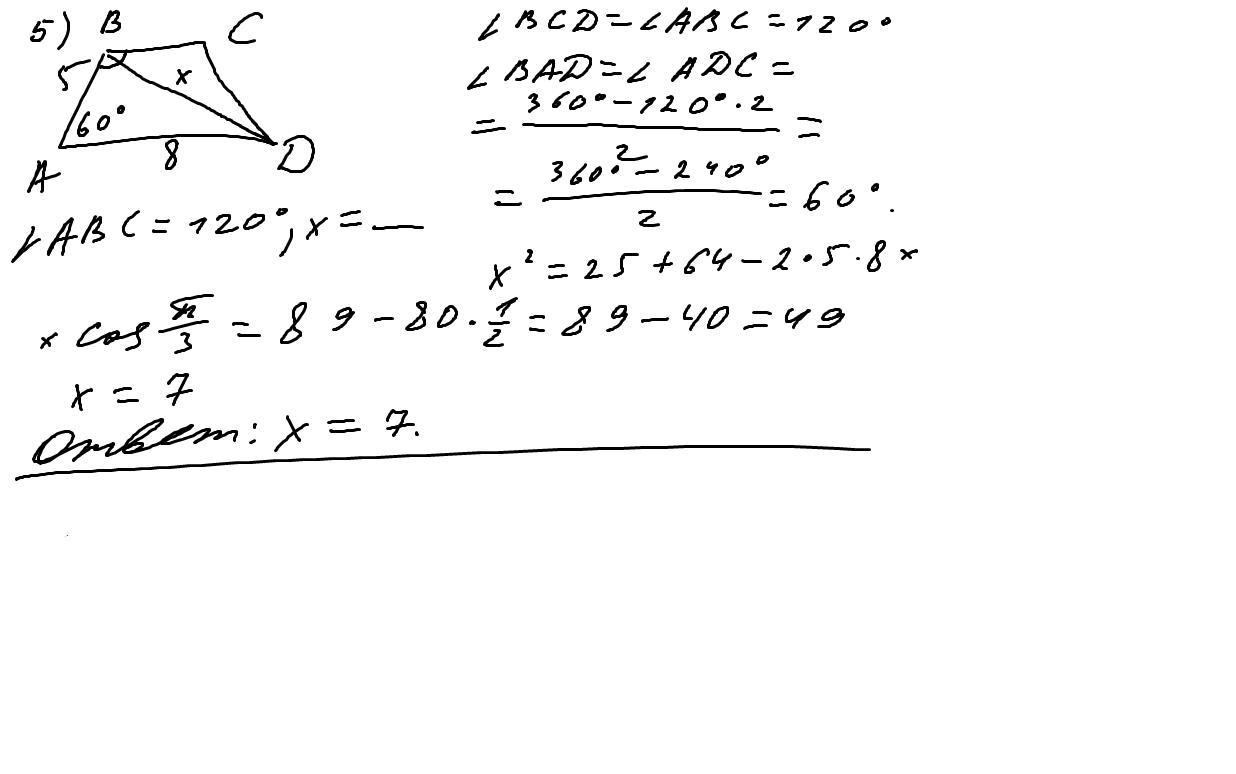 5) B C
5 x
60°
A 8 D
∠ABC = 120°, x = —
∠BCD = ∠ABC = 120°
∠BAD = ∠ADC =
= \frac{360° - 120° · 2}{2} =
= \frac{360° - 240°}{2} = 60°.
x² = 25 + 64 - 2 · 5 · 8 ×
× cos \frac{π}{3} = 89 - 80 · \frac{1}{2} = 89 - 40 = 49
x = 7
Ответ: x = 7.